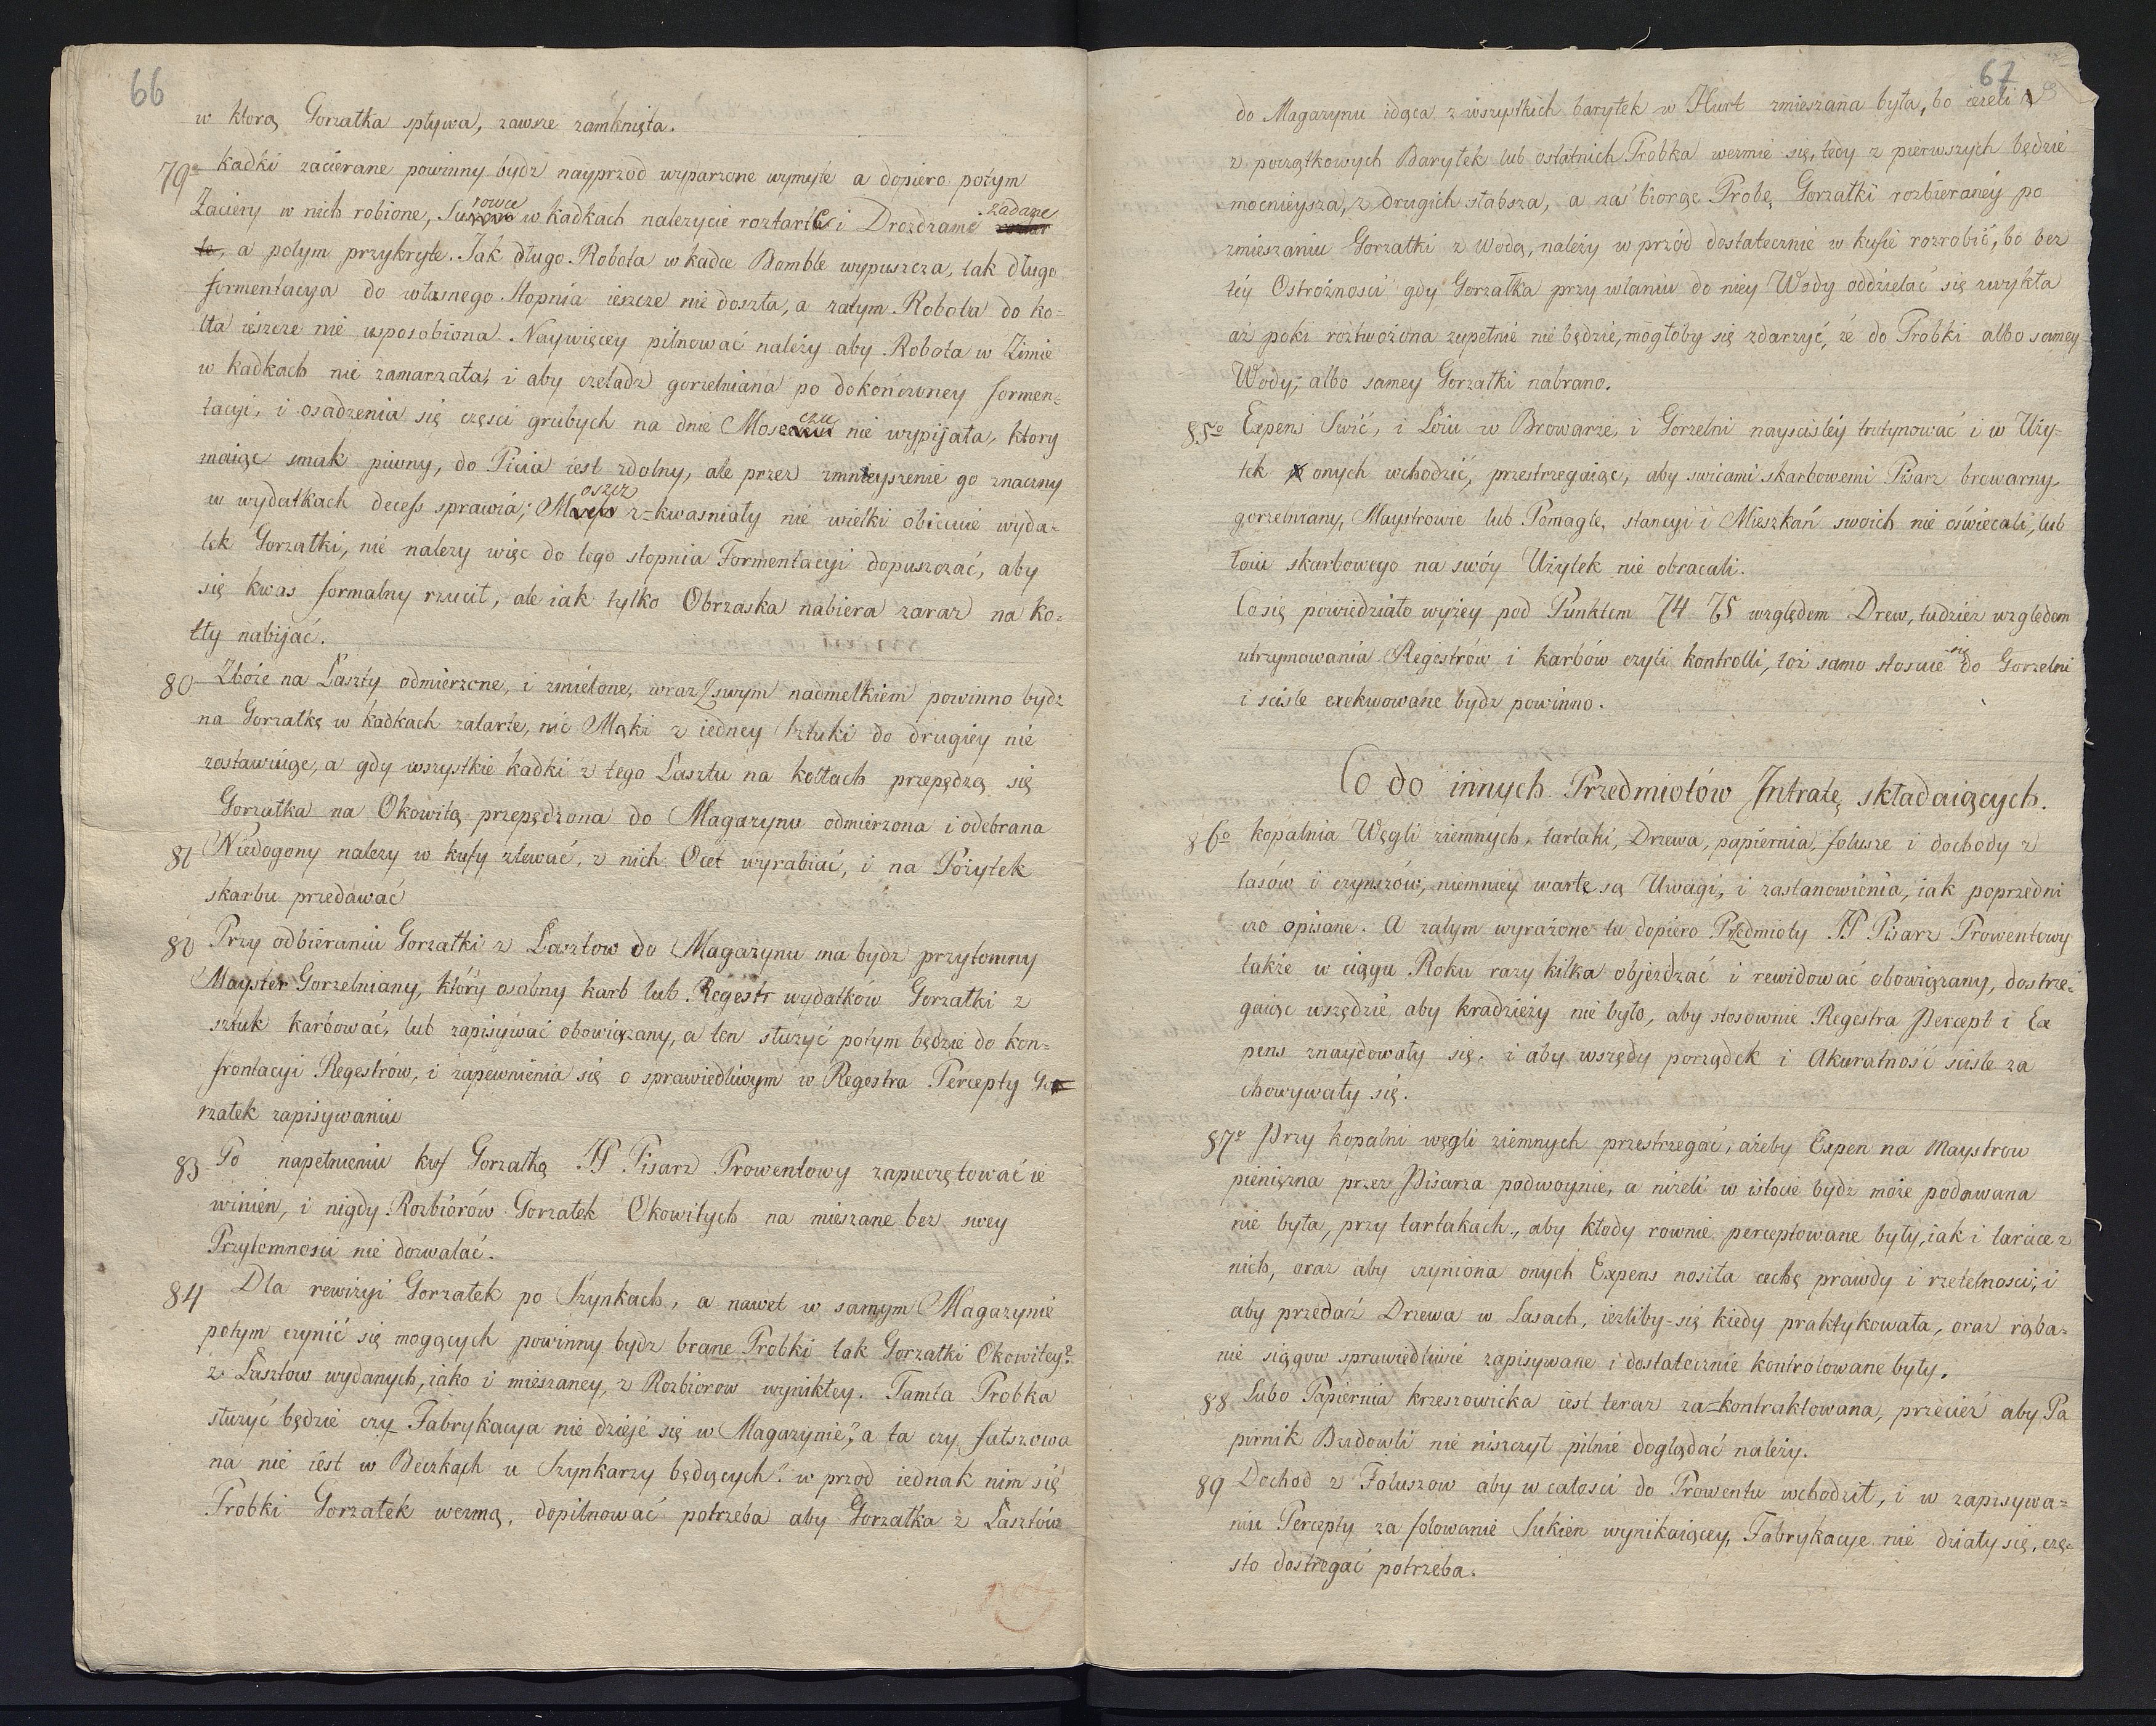 66
w ktorą Gorzałka spływa, zawsze zamknięta.
79o Kadki zacierane powinny bydz nayprzod wyparzone wymyte a dopiero potym
Zaciery w nich robione, Surowce w kadkach nalezycie roztarte i Drozdzami zadane
a potym przykryte. Jak długo Robota w kadce Bomble wypuszcza, tak długo
formentacya do własnego stopnia ieszcze nie doszła, a zatym Robota do ko=
tła ieszcze nie usposobiona. Naywięcey pilnować należy aby Robota w Zimie
w kadkach nie zamarzała, i aby czeladz gorzelniana po dokończoney formen=
tacyi, i osadzenia się częsci grubych na dnie Moszczu nie wypijała, ktory
maiąc smak piwny, do Picia iest zdolny, ale przez zmnieyszenie go znaczny
w wydatkach decess sprawia; Moszcz z=kwasniały nie wielki obiecuie wyda=
tek Gorzałki, nie nalezy więc do tego stopnia Formentacyi dopuszczać, aby
się kwas formalny rzucił, ale iak tylko Obrzaska nabiera zaraz na ko=
tły nabijać.
80 Zboże na Laszty odmierzone, i zmielone, wraz z swym nadmelkiem powinno bydz
na Gorzałkę w kadkach zatarte, nic Mąki z iedney sztuki do drugiey nie
zostawuiąc, a gdy wszystkie kadki z tego Lasztu na kotłach przepędzą się
Gorzałka na Okowitą przepędzona do Magazynu odmierzona i odebrana
81 Niedogony nalezy w kufy zlewać, z nich Ocet wyrabiać, i na Pożytek
skarbu przedawać
82 Przy odbieraniu Gorzałki z Lasztow do Magazynu ma bydz przytomny
Mayster Gorzelniany, który osobny karb lub Regestr wydatków Gorzałki z
sztuk karbować, lub zapisywać obowiązany, a ten służyć potym będzie do kon=
frontacyi Regestrów, i zapewnienia się o sprawiedliwym w Regestra Percepty Go=
rzałek zapisywaniu
83 Po napełnieniu kuf Gorzałką JP Pisarz Prowentowy zapieczętować ie
winien, i nigdy Rozbiorów Gorzałek Okowitych na mieszane bez swey
Przytomnosci nie dozwalać.
84 Dla rewizyi Gorzałek po Szynkach, a nawet w samym Magazynie
potym czynić się mogących powinny bydz brane Probki tak Gorzałki Okowitey
z Lasztow wydanych, iako i mieszaney, z Rozbiorow wynikłey. Tamta Probka
służyć będzie czy Fabrykacya nie dzieje się w Magazynie? a ta czy fałszowa
na nie iest w Beczkach u Szynkarzy będących? w przod iednak nim się
Probki Gorzałek wezmą, dopilnować potrzeba aby Gorzałka z Lasztów
67
do Magazynu idąca z wszystkich baryłek w Hurt zmieszana była, bo ieżeli
z początkowych Baryłek lub ostatnich Probka wezmie się, tedy z pierwszych będzie
mocnieysza, z drugich słabsza, a zaś biorąc Probę Gorzałki rozbieraney po
zmieszaniu Gorzałki z Wodą, należy w przód dostatecznie w kufie rozrobić, bo bez
tey Ostrożnosci gdy Gorzałka przy wlaniu do niey Wody oddzielać się zwykła
aż poki roztworzona zupełnie nie będzie, mogłoby się zdarzyć, że do Probki albo samey
Wody, albo samey Gorzałki nabrano.
85o Expens Swić, i Łoiu w Browarze, i Gorzelni nayscisley trutynować i w Uży-
tek onych wchodzić, przestrzegaiąc, aby swicami skarbowemi Pisarz browarny
gorzelniany, Maystrowie lub Pomagłe, stancyi i Mieszkań swoich nie oświecali, lub
łoiu skarbowego na swóy Użytek nie obracali.
Co się powiedziało wyżey pod Punktem 74 75 względem Drew, tudzież względem
utrzymowania Regestrów i karbów czyli kontrolli, toż samo stosuie się do Gorzelni
i scisle exekwowane bydz powinno.
Co do innych Przedmiotów Intratę składaiących.
86o Kopalnia Węgli ziemnych, tartaki, Drzewa, papiernia, folusze i dochody z
lasów i czynszów, niemniey warte są Uwagi, i zastanowienia, iak poprzedni
czo opisane. A zatym wyrażone tu dopiero Przedmioty JP Pisarz Prowentowy
także w ciągu Roku razy kilka objeżdzać i rewidować obowiązany, dostrze=
gaiąc wszędzie, aby kradzieży nie było, aby stosownie Regestra Percept i Ex
pens znaydowały się, i aby wszędy porządek i Akuratność scisle za
chowywały się.
87o Przy kopalni węgli ziemnych przestrzegać, ażeby Expen na Maystrow
pieniężna przez Pisarza podwoynie, a niżeli w istocie bydz może podawana
nie była, przy tartakach, aby kłody rownie perceptowane były, iak i tarcice z
nich, oraz aby czyniona onych Expens nosiła cechę prawdy i rzetelnosci, i
aby przedaż Drzewa w Lasach, ieżliby się kiedy praktykowała, oraz rąba=
nie siągow sprawiedliwie zapisywane i dostatecznie kontrolowane były.
88 Lubo Papiernia krzeszowicka iest teraz za=kontraktowana, przecież aby Pa
piernik Budowli nie niszczył pilnie doglądać należy.
89 Dochod z Foluszow aby w całosci do Prowentu wchodził, i w zapisywa=
niu Percepty za folowanie Sukien wynikaiącey, Fabrykacye nie działy się, czę=
sto dostrzegać potrzeba.